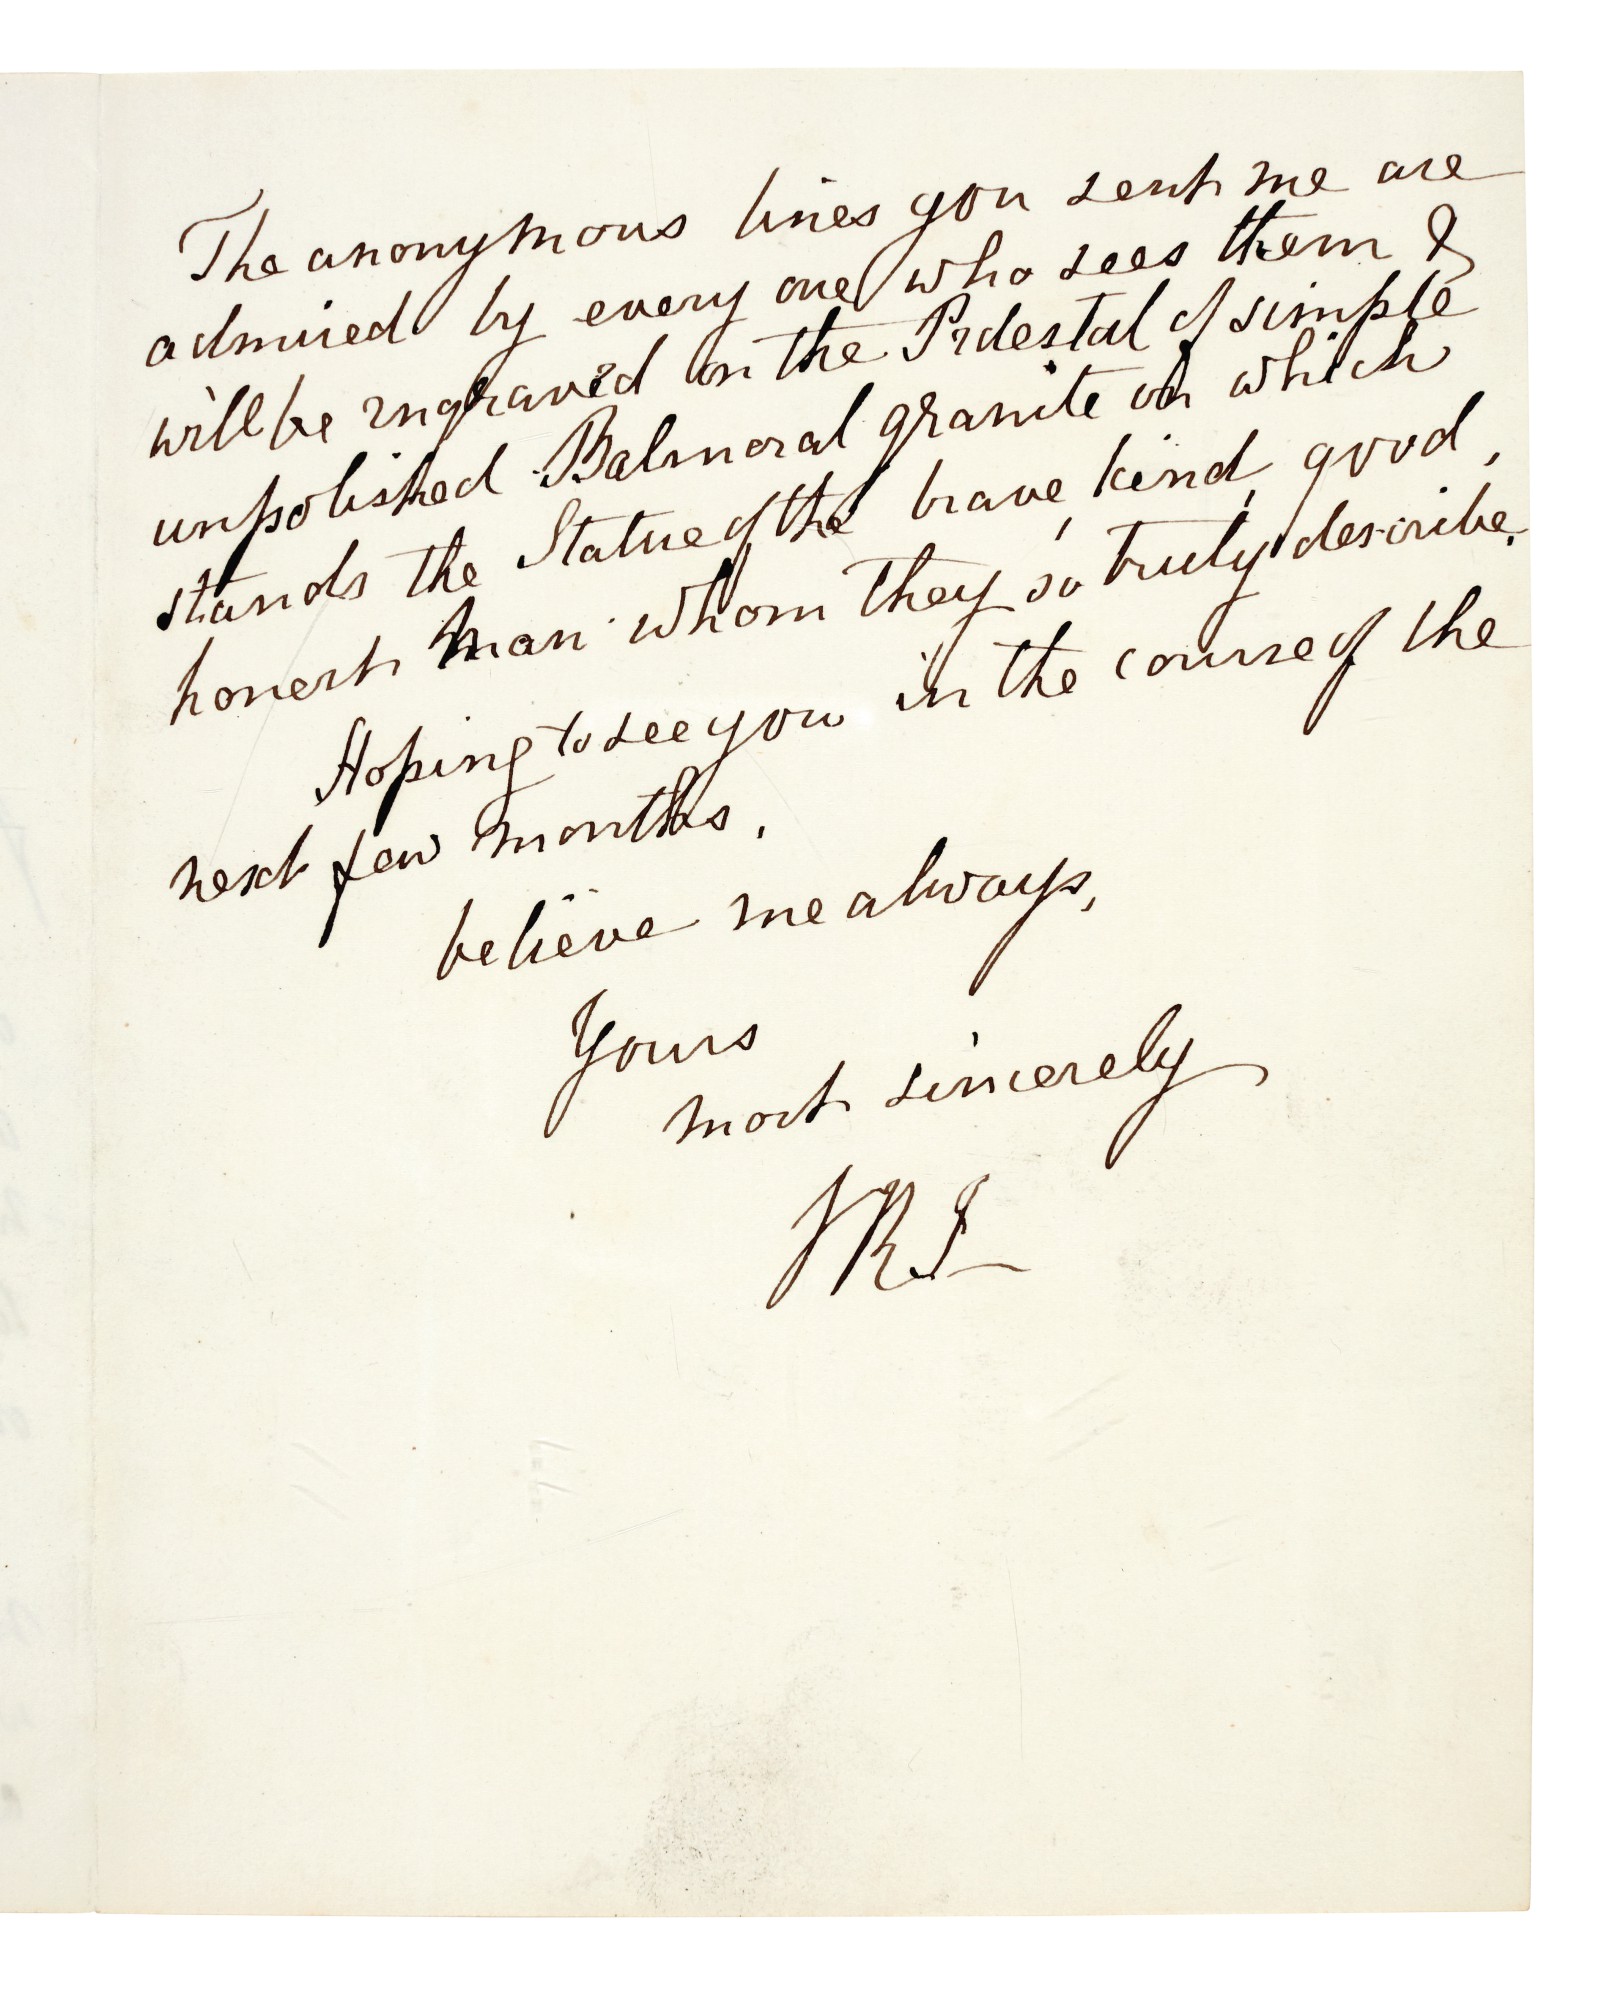 The anonymous lines you sent me are
admired by every one who sees them &
will be engraved on the Pedestal of simple
unpolished Balmoral granite on which
stands the Statue of the brave, kind, good,
honest man whom they so truly describe.
Hoping to see you in the course of the
next few months,
believe me always,
Yours
most sincerely
VRI